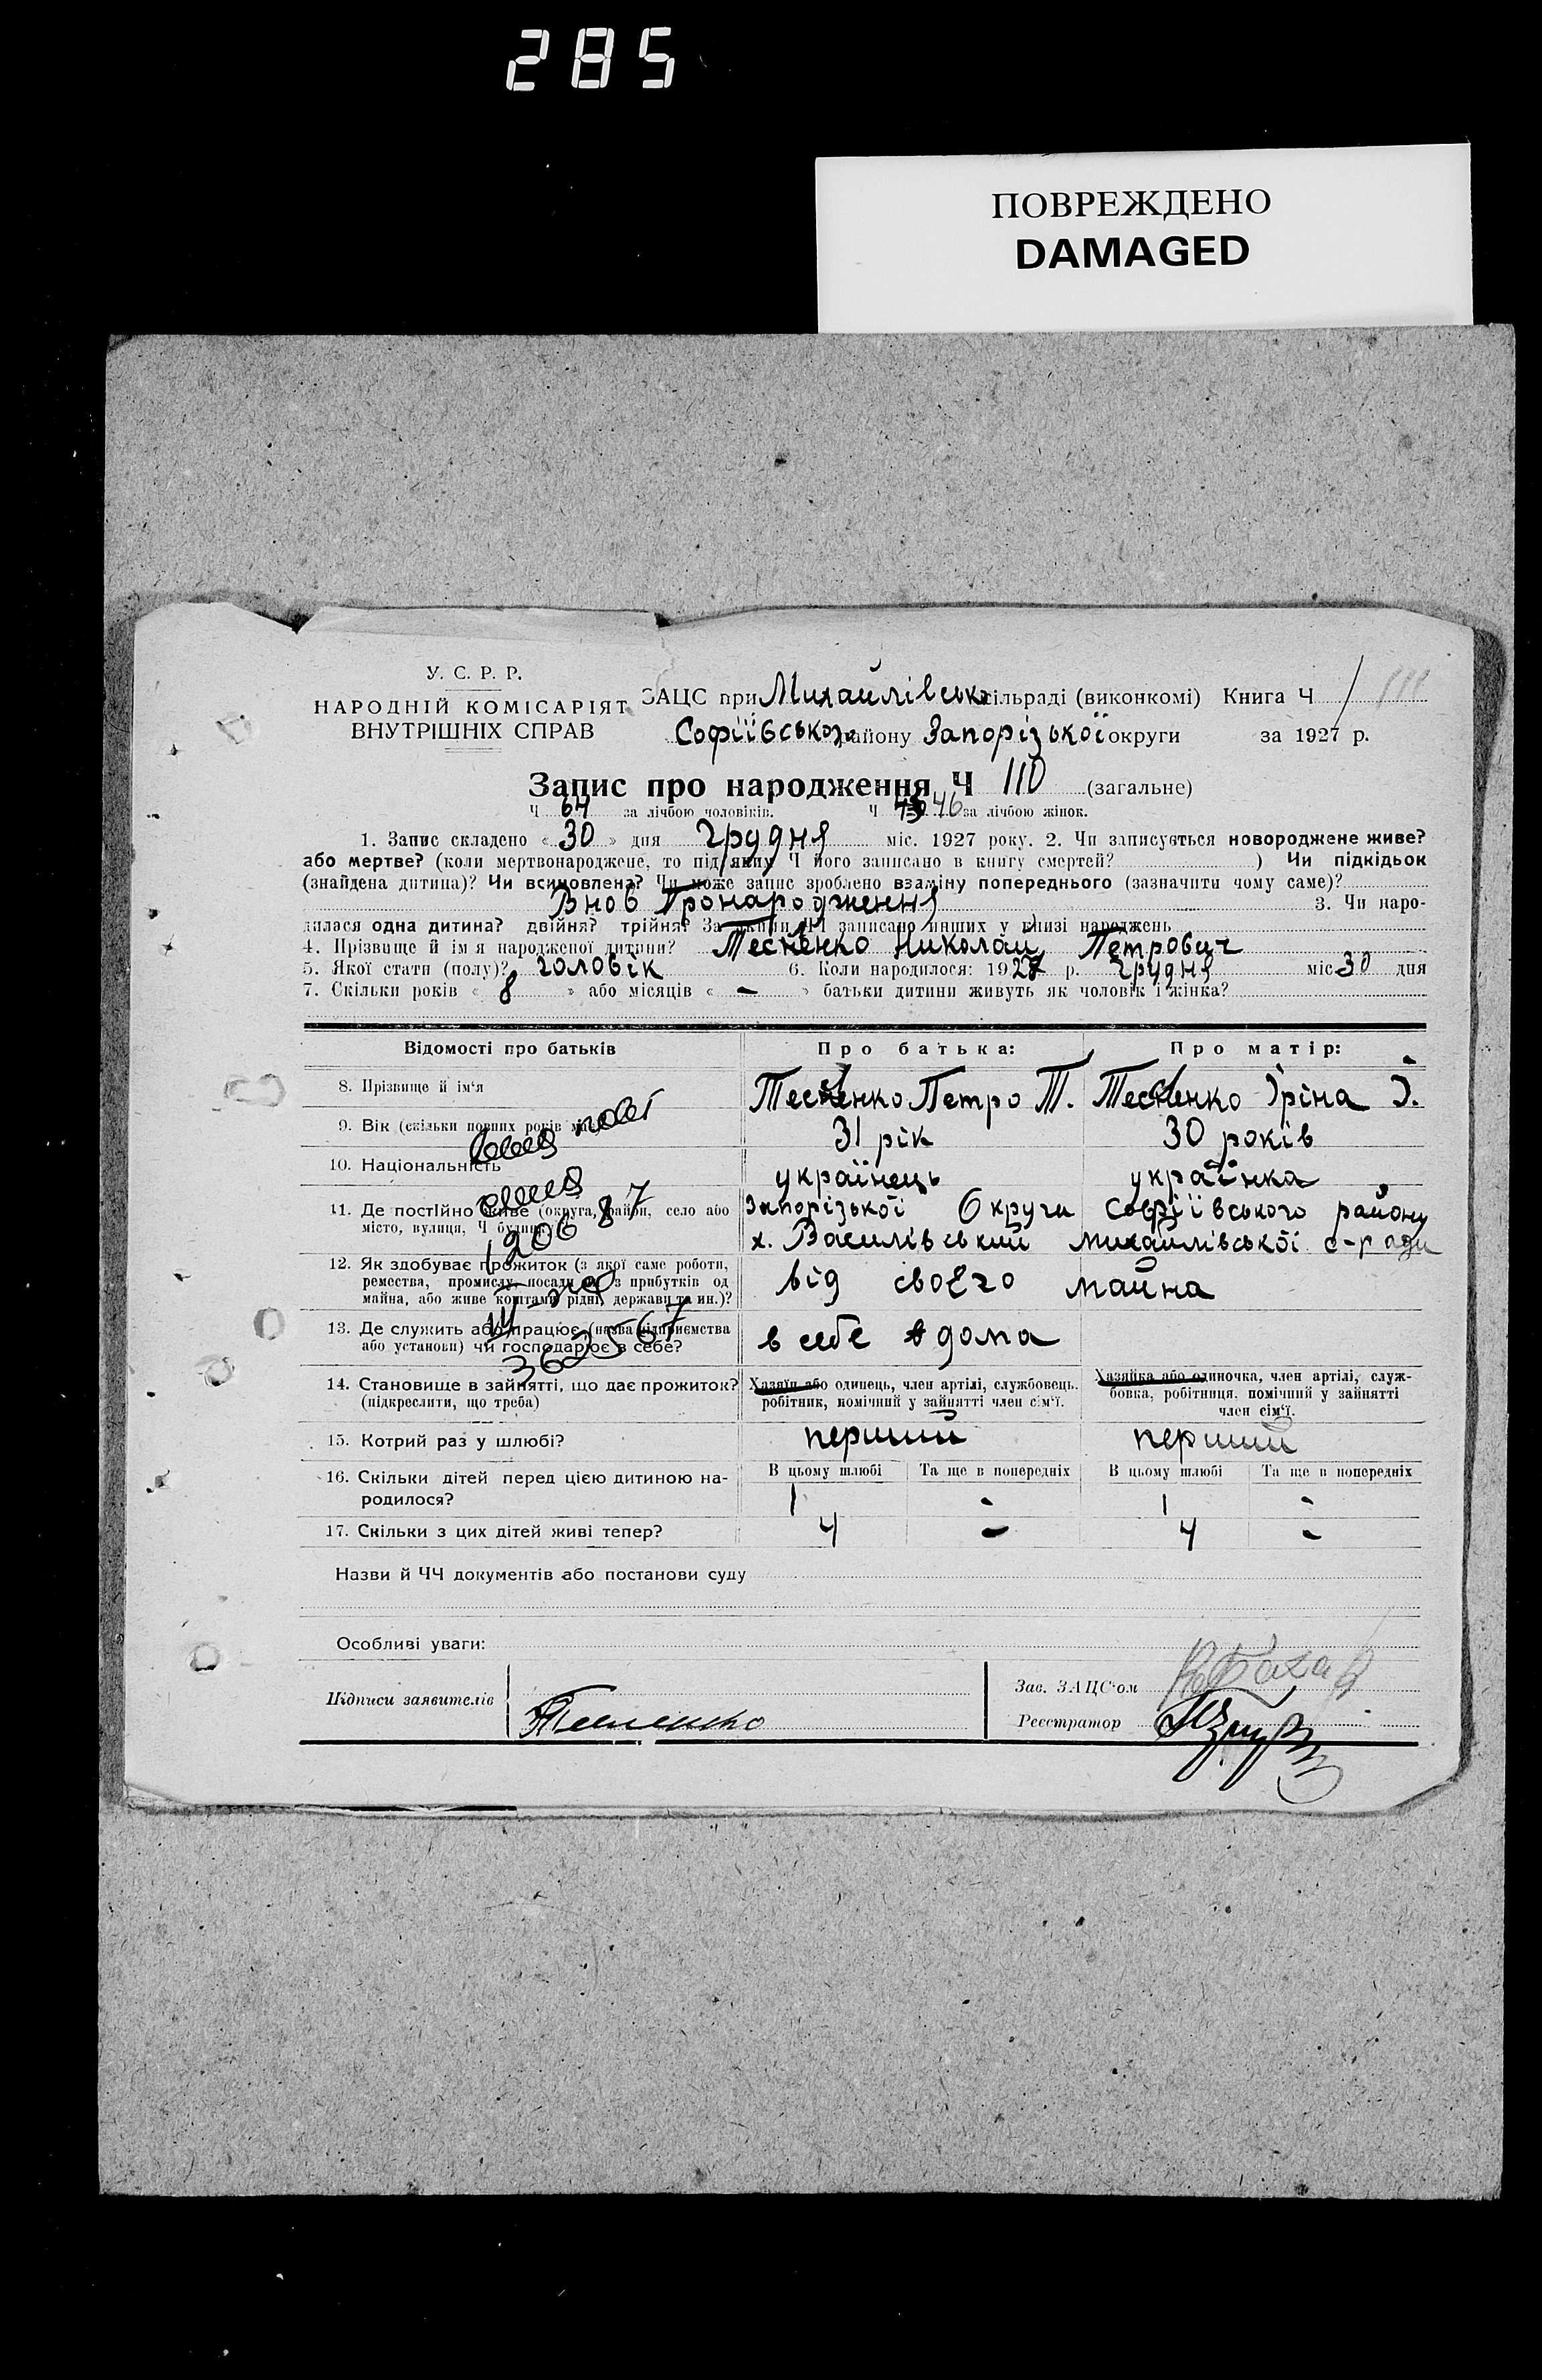 285
ПОВРЕЖДЕНО
DAMAGED
У. С. Р. Р.
НАРОДНІЙ КОМІСАРІЯТ
ВНУТРІШНІХ СПРАВ
ЗАЦС при Михайлівськ сільраді (виконкомі) Книга Ч 111
Софіївського району Запорізької округи за 1927 р.
Запис про народження Ч 110 (загальне)
Ч 64 за лічбою чоловіків. Ч 46 за лічбою жінок.
1. Запис складено « 30 » дня грудня міс. 1927 року. 2. Чи записується новороджене живе?
або мертве? (коли мертвонароджене, то під яким Ч його записано в книгу смертей? ) Чи підкідьок
(знайдена дитина)? Чи всиновлена? Чи може запис зроблено взаміну попереднього (зазначити чому саме)?
Внов Пронародження 3. Чи наро-
дилася одна дитина? двійня? трійня? За якими ЧЧ записано инших у книзі народжень
4. Прізвище й ім'я народженої дитини? Тесленко Николай Петрович
5. Якої стати (полу)? чоловік 6. Коли народилося: 1927 р. грудня міс 30 дня
7. Скільки років « 8 » або місяців « - » батьки дитини живуть як чоловік і жінка?
Відомості про батьків Про батька: Про матір:
8. Прізвище й ім'я Тесленко Петро Т. Тесленко Іріна І.
9. Вік (скільки повних років має) 31 рік 30 років
10. Національність українець українка
11. Де постійно живе (округа, район, село або Запорізької Округи Софіївського району
місто, вулиця, Ч будинку)? х. Василівський михайлівської с-ради
12. Як здобуває прожиток (з якої саме роботи,
ремества, промислу, посади чи з прибутків од
майна, або живе коштами рідні, держави та ин.)? від своєго майна
13. Де служить або працює (назва підприємства
або установи) чи господарює в себе? в себе дома
362567
14. Становище в зайнятті, що дає прожиток? Хазяїн або одинець, член артілі, службовець. Хазяйка або одиночка, член артілі, служ-
(підкреслити, що треба) робітник, помічний у зайнятті член сім'ї. бовка, робітниця. помічний у зайнятті
член сім'ї.
15. Котрий раз у шлюбі? перший перший
16. Скільки дітей перед цією дитиною на- В цьому шлюбі Та ще в попередніх В цьому шлюбі Та ще в попередніх
родилося? 1 - 1 -
17. Скільки з цих дітей живі тепер? 4 - 4 -
Назви й ЧЧ документів або постанови суду
Особливі уваги:
Підписи заявителів Тесленко
Зав. ЗАЦС'ом
Реєстратор